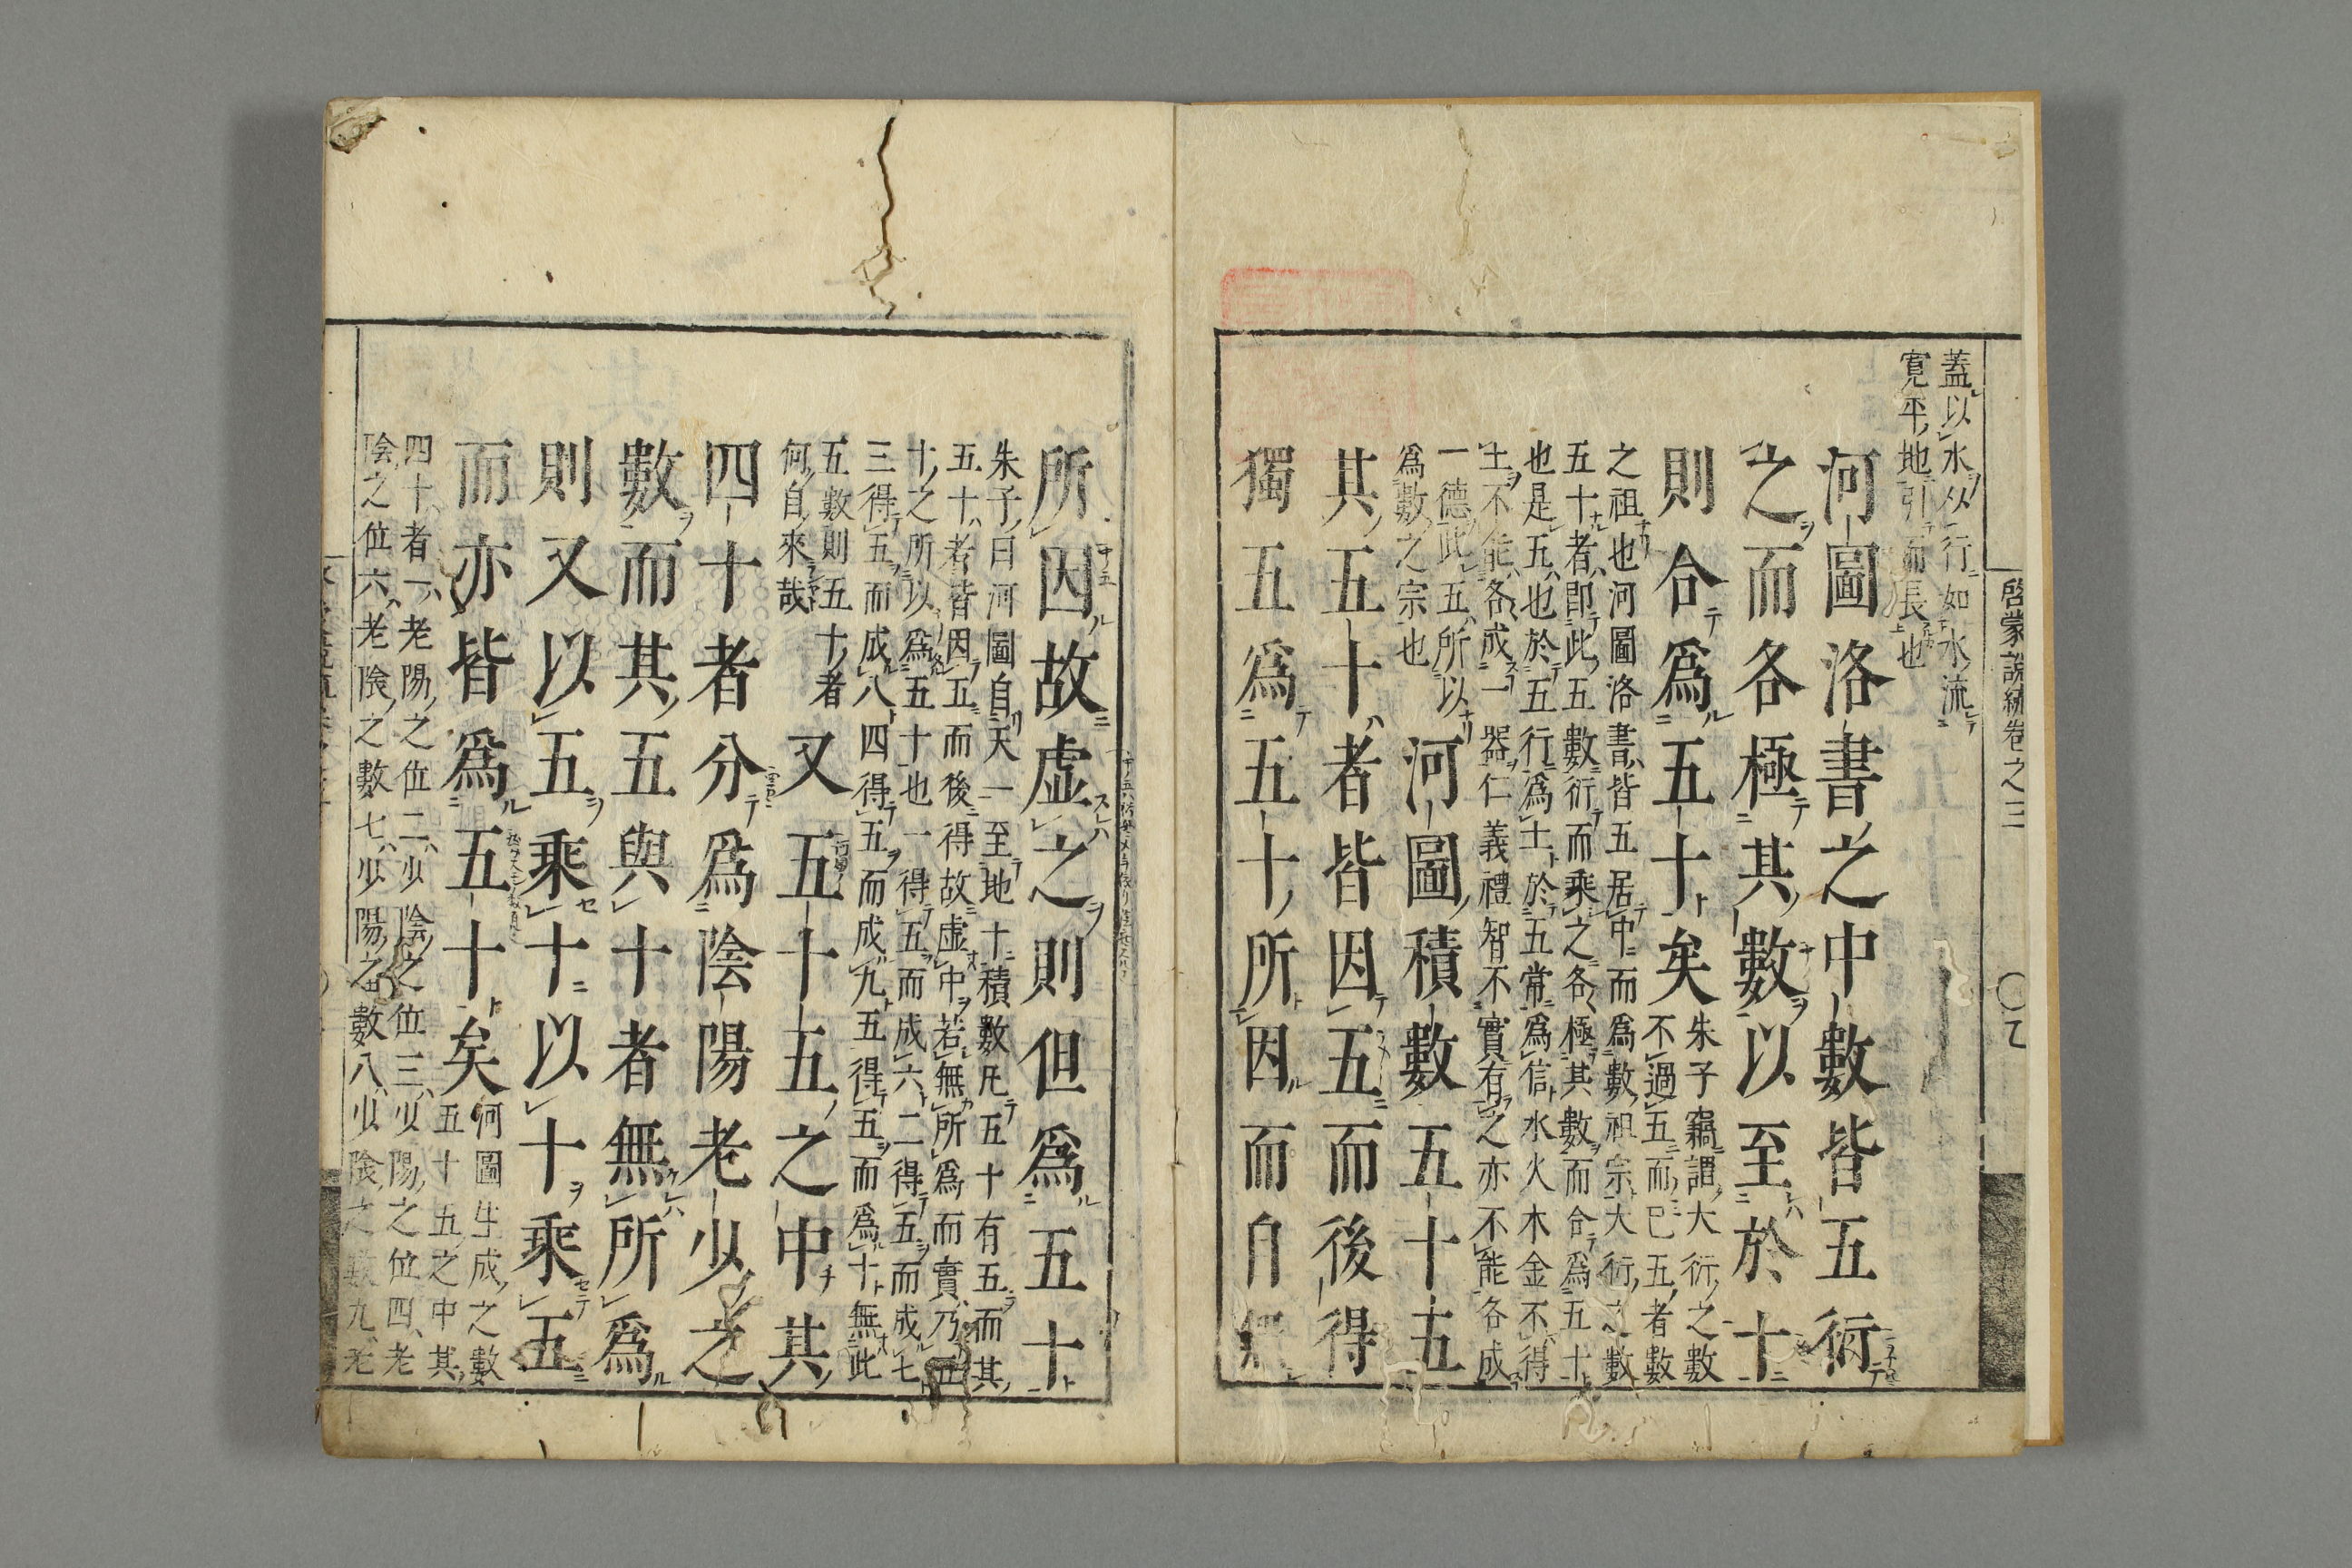 蓋以水從行如水流
寛平地引而長也
河圖洛書之中數皆五衍
之而各極其數以至於十
則合爲五十矣
朱子竊謂大衍之數
不過五而已五者數
之祖也河圖洛書皆五居中而爲數祖宗大衍之數
五十者即此五數衍而乘之各極其數而合爲五十
也是五也於五行爲土於五常爲信水火木金不得
土不能各成一器仁義禮智不實有之亦不能各成
一德此五所以
爲數之宗也
河圖積數五十五
其五十者皆因五而後得
獨五爲五十所因而自無
啓蒙說統卷之三
所因故虛之則但爲五十
朱子曰河圖自天一至地十積數凡五十有五而其
五十者皆因五而後得故虛中若無所爲而實乃五
十之所以爲五十也一得五而成六二得五而成七
三得五而成八四得五而成九五得五而爲十無此
五數則五十者
何自來哉
又五十五之中其
四十者分爲陰陽老少之
數而其五與十者無所爲
則又以五乘十以十乘五
而亦皆爲五十矣
河圖生成之數
五十五之中其
四十者一老陽之位二少陰之位三少陽之位四老
陰之位六老陰之數七少陽之數八少陰之數九老